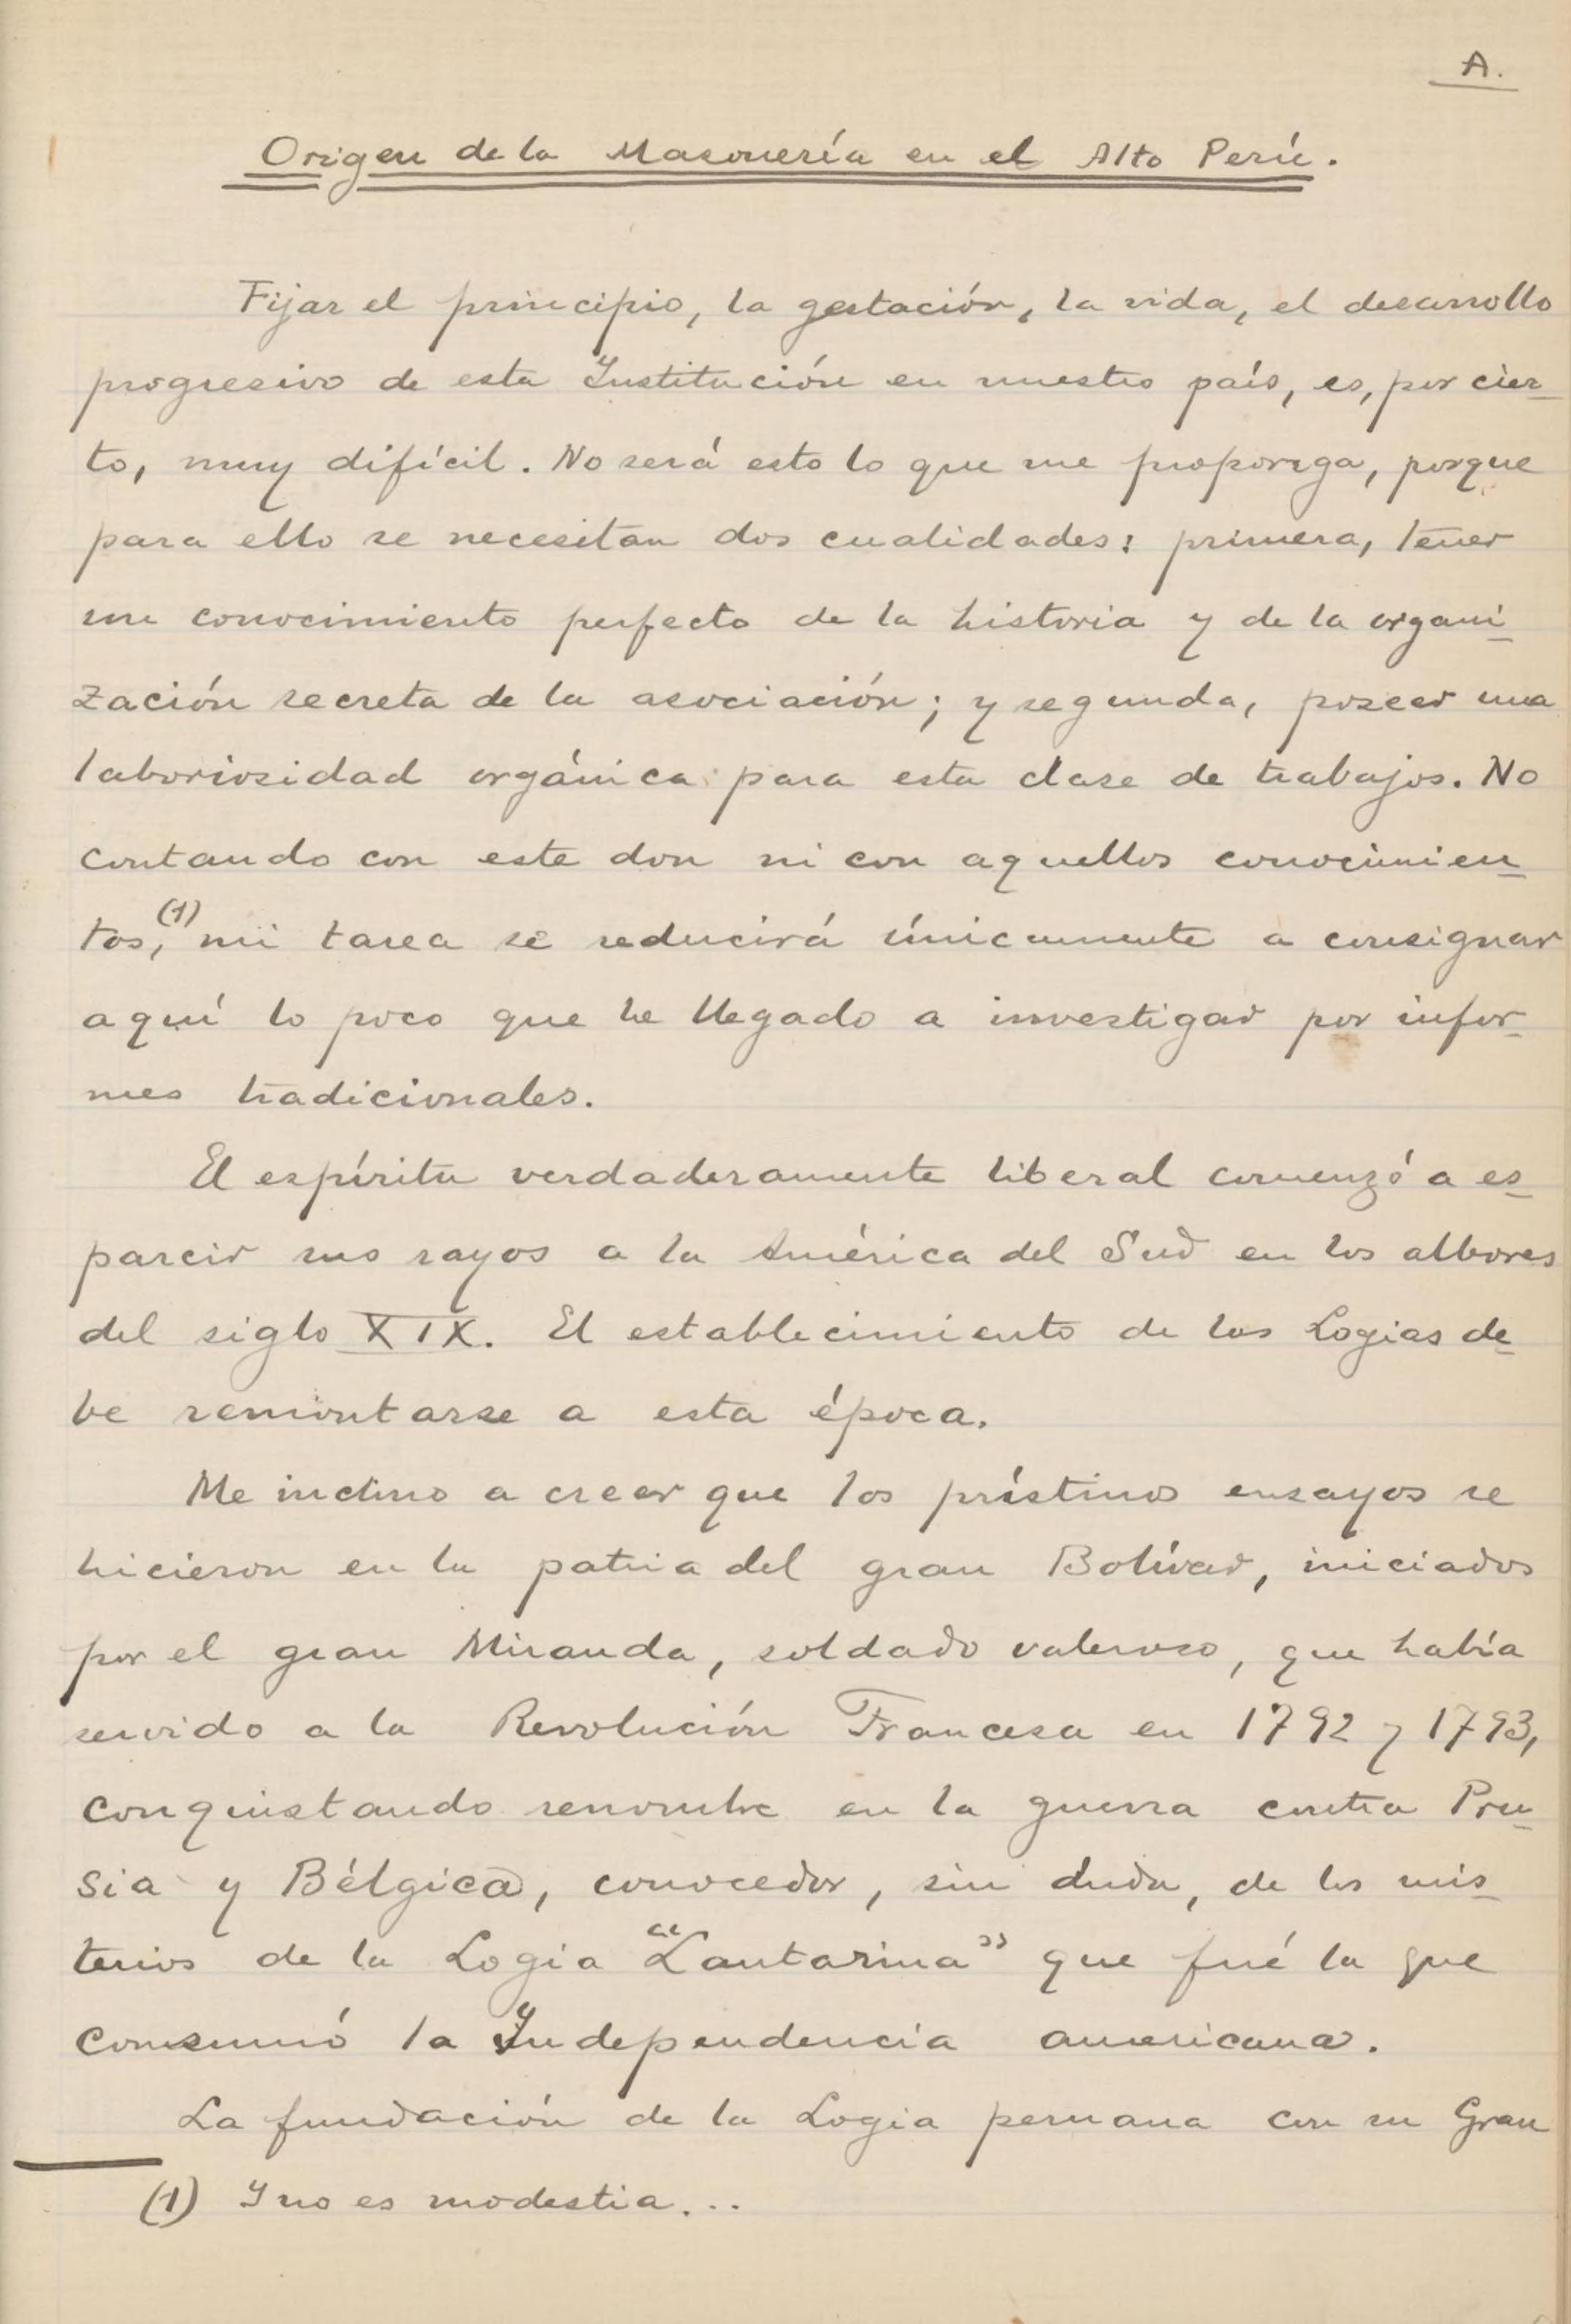 A.
Origen de la Masonería en el Alto Perú.
Fijar el principio, la gestación, la vida, el desarrollo
progresivo de esta Institución en nuestro país, es, por cier-
to, muy difícil. No será esto lo que me proponga, porque
para ello se necesitan dos cualidades: primera, tener
un conocimiento perfecto de la historia y de la organi-
zación secreta de la asociación; y segunda, poseer una
laboriosidad orgánica para esta clase de trabajos. No
contando con este don ni con aquellos conocimien-
tos,(1) mi tarea se reducirá únicamente a consignar
aquí lo poco que he llegado a investigar por infor-
mes tradicionales.
El espíritu verdaderamente liberal comenzó a es-
parcir sus rayos a la América del Sud en los albores
del siglo XIX. El establecimiento de las Logias de-
be remontarse a esta época.
Me inclino a creer que los prístinos ensayos se
hicieron en la patria del gran Bolívar, iniciados
por el gran Miranda, soldado valeroso, que había
servido a la Revolución Francesa en 1792 y 1793,
conquistando renombre en la guerra contra Pru-
sia y Bélgica, conocedor, sin duda, de los mis-
terios de la Logia "Lautarina" que fué la que
consumó la Independencia americana.
La fundación de la Logia peruana con su Gran
(1) Y no es modestia...